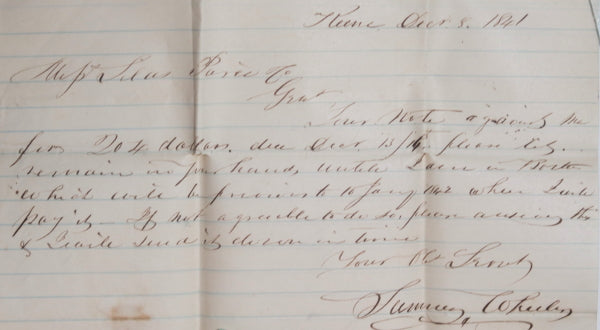 Keene Decr 8. 1841
Messrs Silas Peirce & Co
Gent
Your Note against me
for 204 dollars, due Decr 13/16, please let
remain in your hands until I am in Boston
which will be previous to 10 Jany 1842 when I will
pay it. If not agreeable to do so, please answer this
& I will send it down in time
Your Obt Servt
Sumner Wheeler